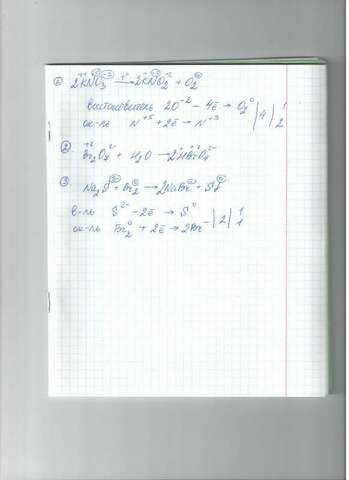 ① 2KNO₃ →ᵗ° 2KNO₂ + O₂
восстановитель 2O⁻² – 4ē → O₂⁰ | 4 | 1
ок-ль N⁺⁵ + 2ē → N⁺³ 2
② Br₂O₇ + H₂O → 2HBrO₄
③ Na₂S + Br₂ → 2NaBr + S↓
в-ль S²⁻ – 2ē → S⁰ 1
ок-ль Br₂⁰ + 2ē → 2Br⁻ | 2 | 1